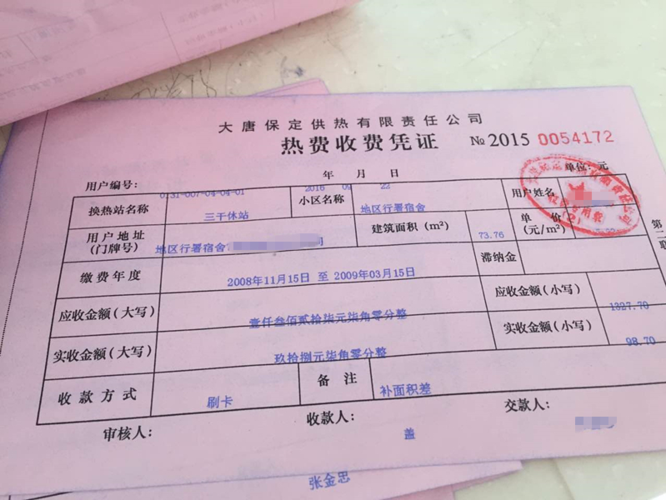 大唐保定供热有限责任公司
热费收费凭证 №2015 0054172
年 月 日
用户编号: 0131-007-04-04-01 2016 09 22 单位:元
换热站名称 三干休站 小区名称 地区行署宿舍 用户姓名
用户地址(门牌号) 地区行署宿舍 建筑面积(m²) 73.76 单价(元/m²)
缴费年度 2008年11月15日 至 2009年03月15日 滞纳金
应收金额(大写) 壹仟叁佰贰拾柒元柒角零分整 应收金额(小写) 1327.70
实收金额(大写) 玖拾捌元柒角零分整 实收金额(小写) 98.70
收款方式 刷卡 备注 补面积差
审核人: 收款人: 盖 交款人:
张金忠
第二联